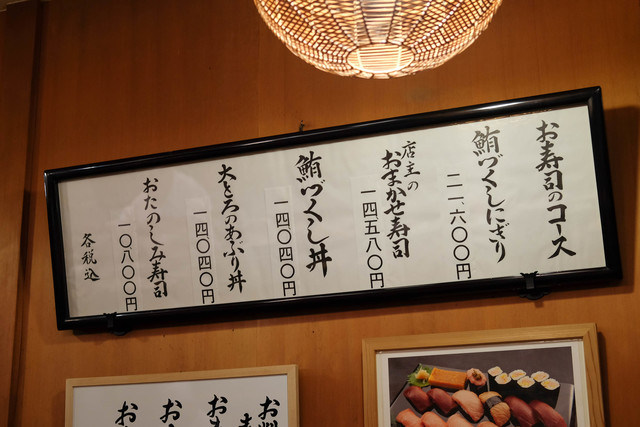 お寿司のコース
鮪づくしにぎり
二一、六〇〇円
店主の
おまかせ寿司
一四五八〇円
鮪づくし丼
一四〇四〇円
大とろのあぶり丼
一四〇四〇円
おたのしみ寿司
一〇八〇〇円
各税込